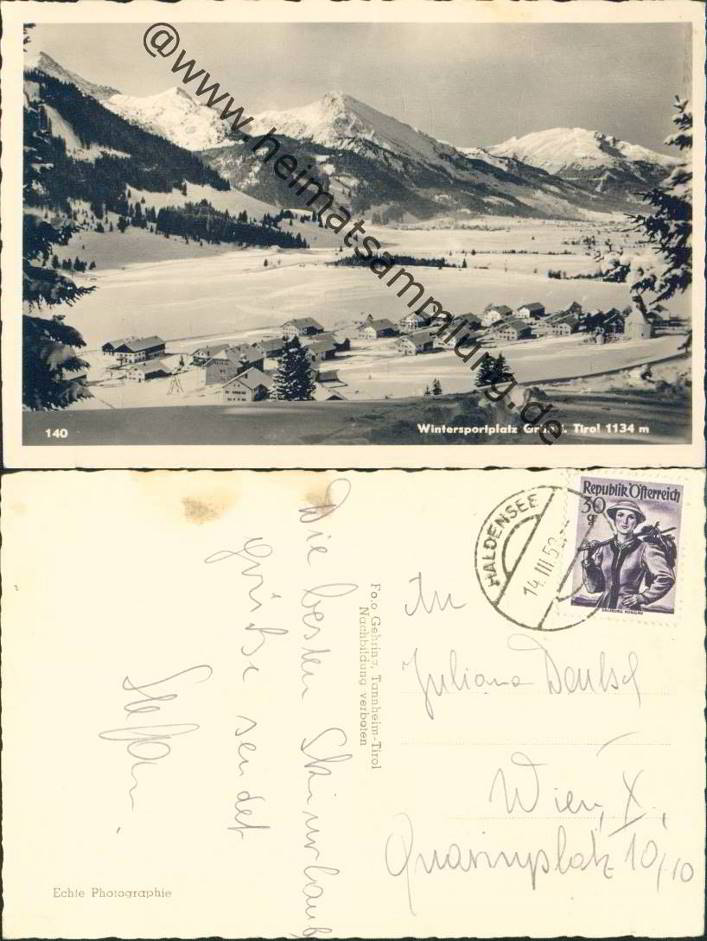 @www.heimatsammlung.de
140
Wintersportplatz Grän i. Tirol 1134 m
HALDENSEE
14.III.53
Republik Österreich
30
g
Die besten Skiurlaub
grüße sendet
Stefan
Foto Gehring, Tannheim-Tirol
Nachbildung verboten
An
Juliana Deutsch
Wien, X.,
Quarinplatz 10/10
Echte Photographie